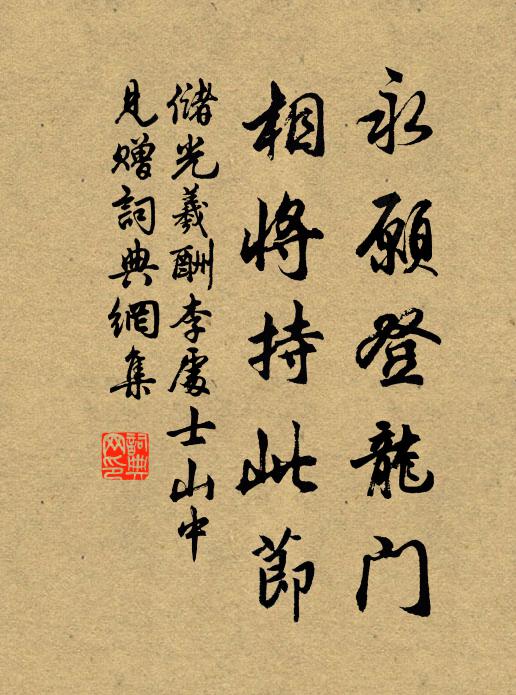 永願登龍门
相將持此節
儲光羲酬李處士山中
見贈詞典網集
詞典
网印